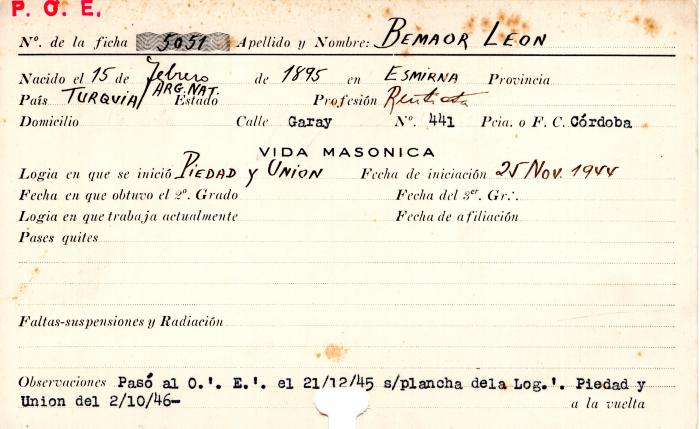 P. O. E.
Nº. de la ficha 5051 Apellido y Nombre: BEMAOR LEON
Nacido el 15 de febrero de 1895 en ESMIRNA Provincia
País TURQUIA/ARG.NAT. Estado Profesión Rentista
Domicilio Calle Garay Nº. 441 Pcia. o F. C. Córdoba
VIDA MASONICA
Logia en que se inició PIEDAD y UNION Fecha de iniciación 25 Nov. 1944
Fecha en que obtuvo el 2º. Grado Fecha del 3er. Gr∴.
Logia en que trabaja actualmente Fecha de afiliación
Pases quites
Faltas-suspensiones y Radiación
Observaciones Pasó al O.'. E.'. el 21/12/45 s/plancha dela Log.'. Piedad y
Union del 2/10/46-
a la vuelta